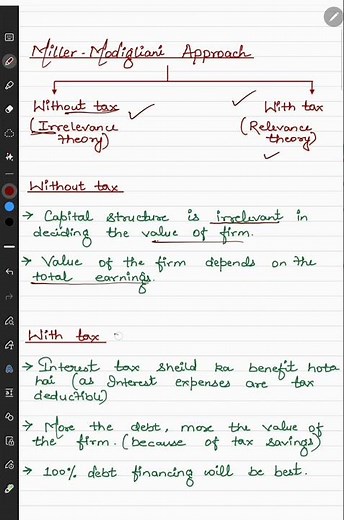 Miller-Modigliani Approach
Without tax
(Irrelevance
theory)
With tax
(Relevance
theory)
Without tax
→ Capital structure is irrelevant in
deciding the value of firm.
→ Value of the firm depends on the
total earnings.
With tax
→ Interest tax sheild ka benefit hota
hai (as Interest expenses are tax
deductible)
→ More the debt, more the value of
the firm. (because of tax savings)
→ 100% debt financing will be best.